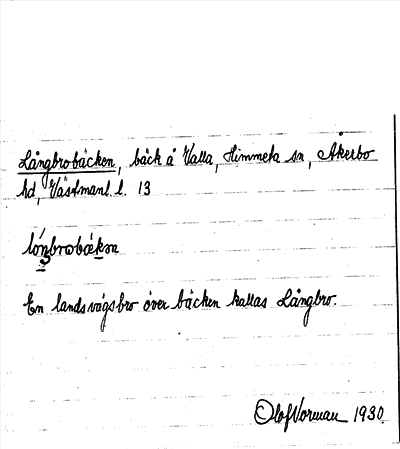 Långbrobäcken, bäck å Valla, Himmeta sn, Åkerbo
hd, Västmanl. l. 13
lóŋbrobækən
En landsvägsbro över bäcken kallas Långbro.
Olof Vorman 1930.